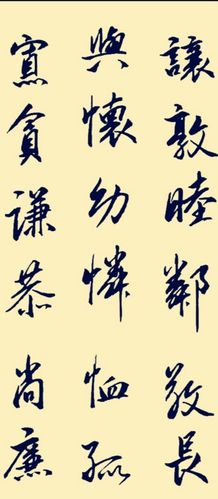 讓敦睦鄰敬長
與懷幼憐恤孤
寡貧謙恭尚廉